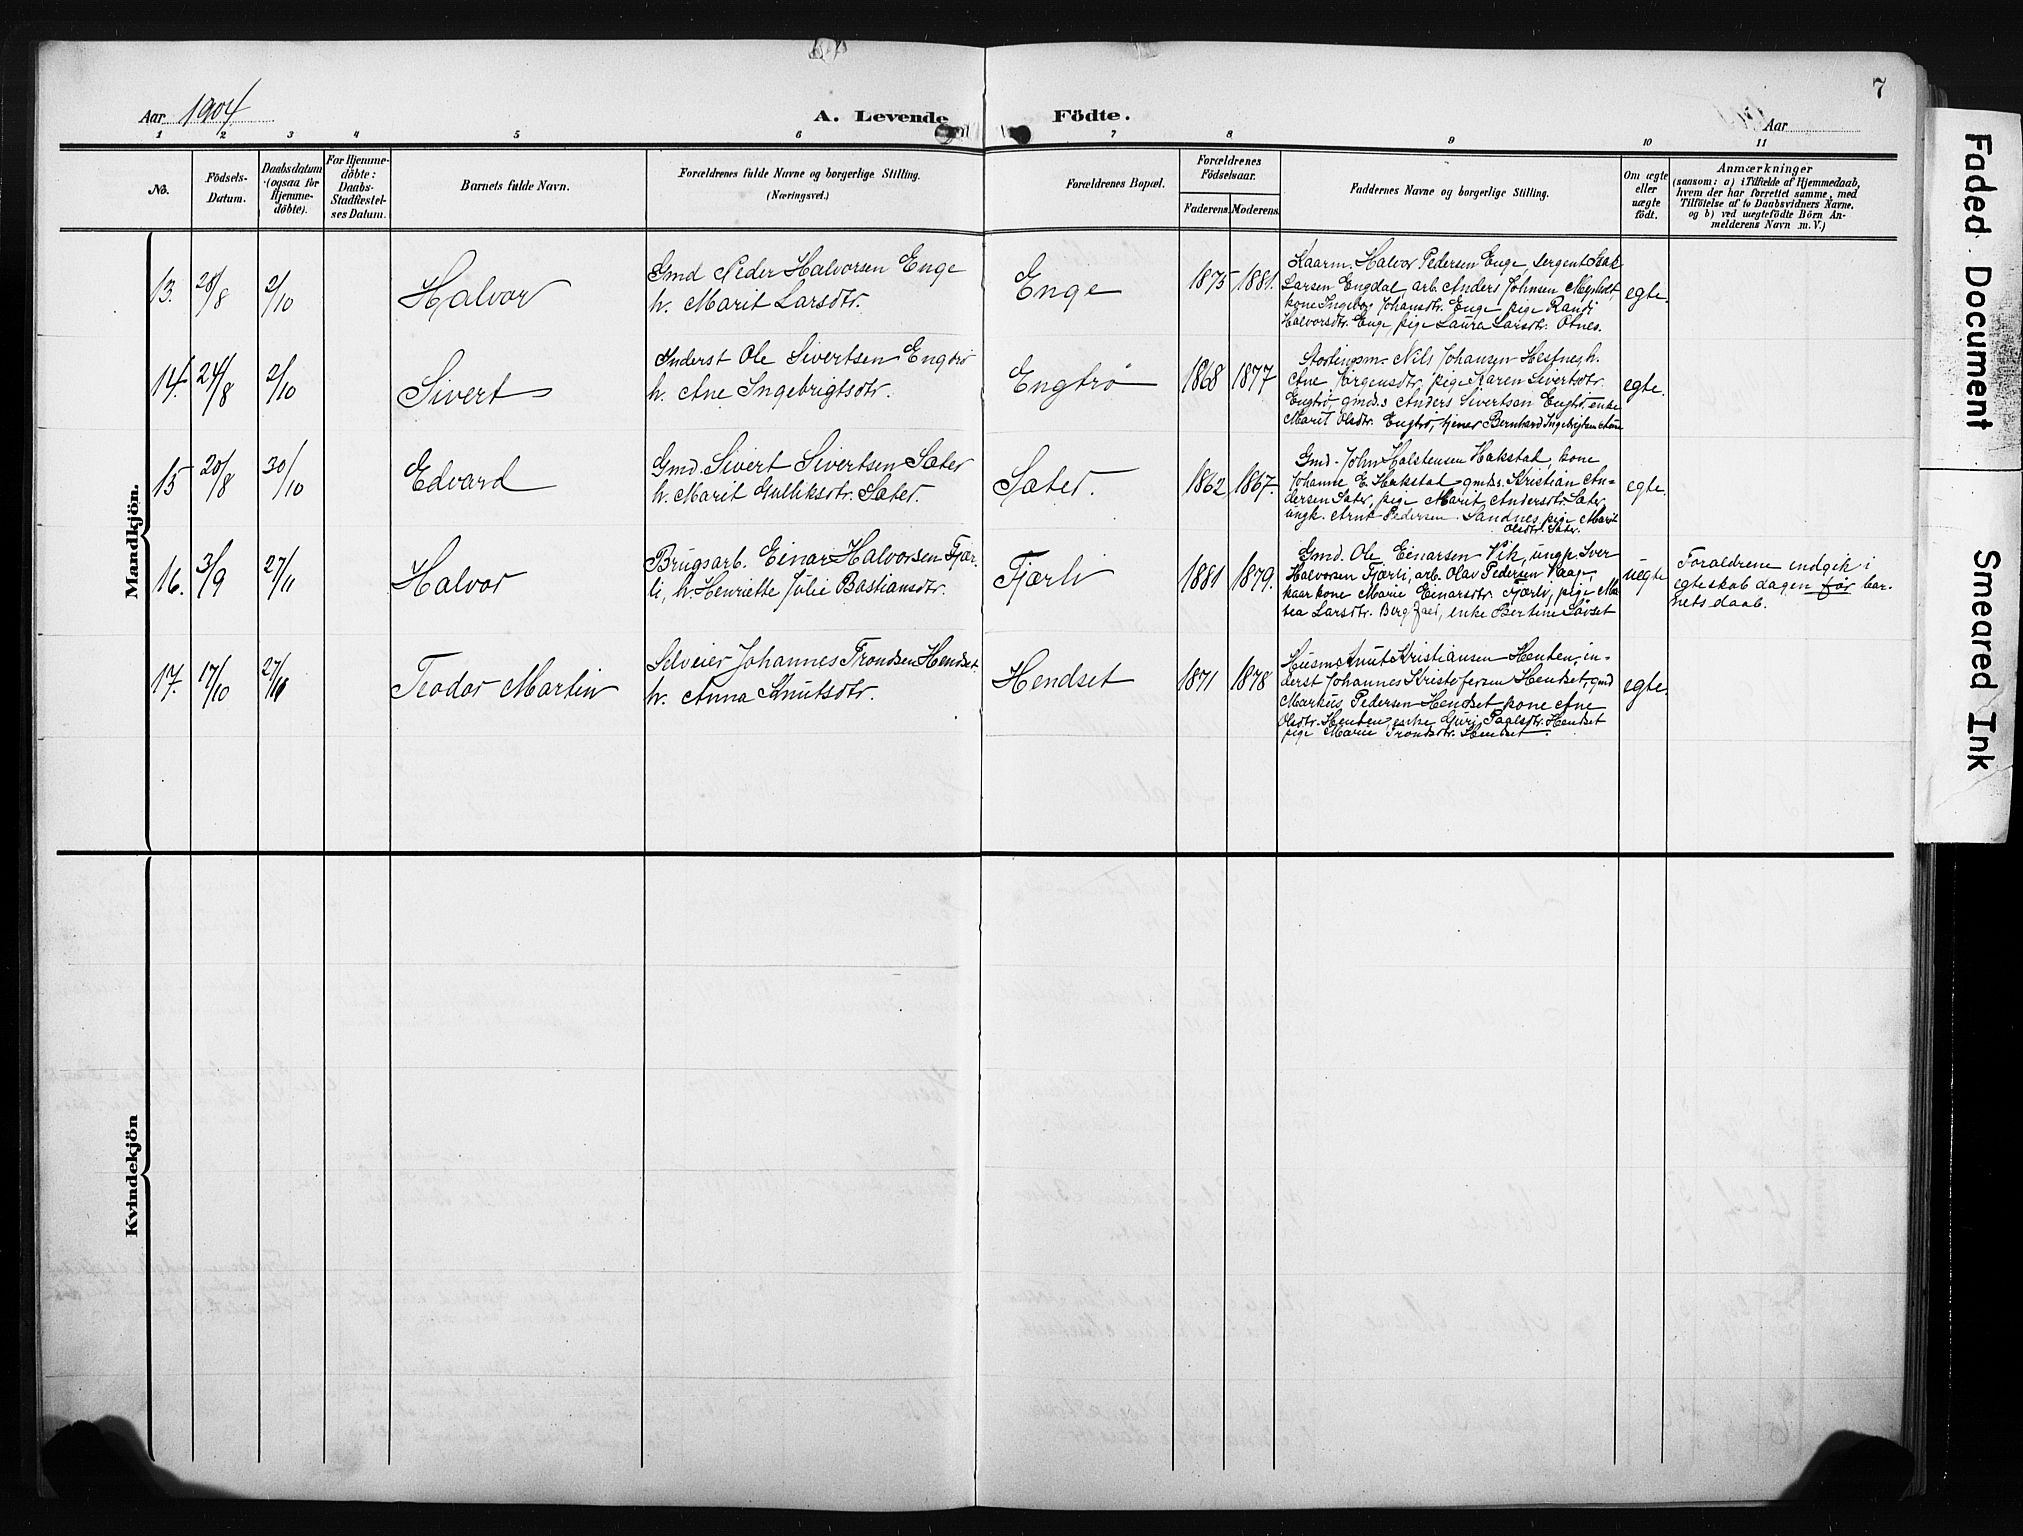 7
Aar 1904
A. Levende Födte.
Aar
1 2 3 4 5 6 7 8 9 10 11
No.
Födsels-
Datum.
Daabsdatum
(ogsaa for
Hjemme-
döbte).
For Hjemme-
döbte:
Daabs-
Stadfæstel-
ses Datum.
Barnets fulde Navn.
Forældrenes fulde Navne og borgerlige Stilling.
(Næringsvei.)
Forældrenes Bopæl.
Forældrenes
Födselsaar.
Faderens. Moderens.
Faddernes Navne og borgerlige Stilling.
Om ægte
eller
uægte
födt.
Anmærkninger
(saasom: a) i Tilfælde af Hjemmedaab,
hvem der har forrettet samme, med
Tilföielse af to Daabsvidners Navne.
og b) ved uegtefödte Börn An-
melderens Navn m. V.)
Mandkjön.
13.
28/8
2/10
Halvor
Gmd Peder Halvorsen Enge
h. Marit Larsdtr.
Enge
1875 1881.
Kaarm. Halvor Pedersen Enge, sergent Isak
Larsen Engdal, arb. Anders Johnsen
kone Ingebor Johansdtr. Enge, pige Randi
Halvorsdtr. Enge, pige Laura Larsdtr. Otnes.
egte.
14.
24/8
2/10
Sivert
Inderst Ole Sivertsen Engtrø
h. Ane Ingebrigtsdtr.
Engtrø
1868 1877
Nils Johansen Hestnes h.
Ane Jørgensdtr. pige Karen Sivertsdtr.
Engtrø, gmds.s Anders Sivertsen Engtrø, enke
Marit Olsdtr. Engtrø, tjener Bernhard Ingebrigtsen
egte.
15
20/8
30/10
Edvard
Gmd. Sivert Sivertsen Sæter
h. Marit Gulliksdtr. Sæter.
Sæter.
1862 1867.
Gmd. John Halstensen Hakstal, kone
Johanne E. Hakstal gmds. Kristian An-
dersen Sæter, pige Marit Andersdtr. Sæter,
ungk. Arnt Pedersen Sandnes pige Marit
Olsdtr. Sæter.
egte.
16.
3/9
27/11
Halvor
Brugsarb. Einar Halvorsen Fjær-
li, h. Henriette Julie Bastiansdtr.
Fjærli
1881 1879.
Gmd. Ole Einarsen Vik, ungk. Iver
Halvorsen Fjærli, arb. Olav Pedersen Vaag,
kaarkone Marie Einarsdtr. Fjærli, pige Ma-
tea Larsdtr. Berg enke Bertine Løvset
uegte
Forældrene indgik i
egteskab dagen før bar-
nets daab.
17.
17/10
27/11
Teodor Martin
Selveier Johannes Trondsen Hendset
h. Anna Knutsdtr.
Hendset
1871 1878
Husm. Knut Kristiansen Henden, in-
derst Johannes Kristofersen Hendset, gmd
Markus Pedersen Hendset kone Ane
Olsdtr. Henden, enke Guri Paalsdtr. Hendset
pige Marie Trondsdtr. Hendset.
egte.
Kvindekjön
Faded Document
Smeared Ink